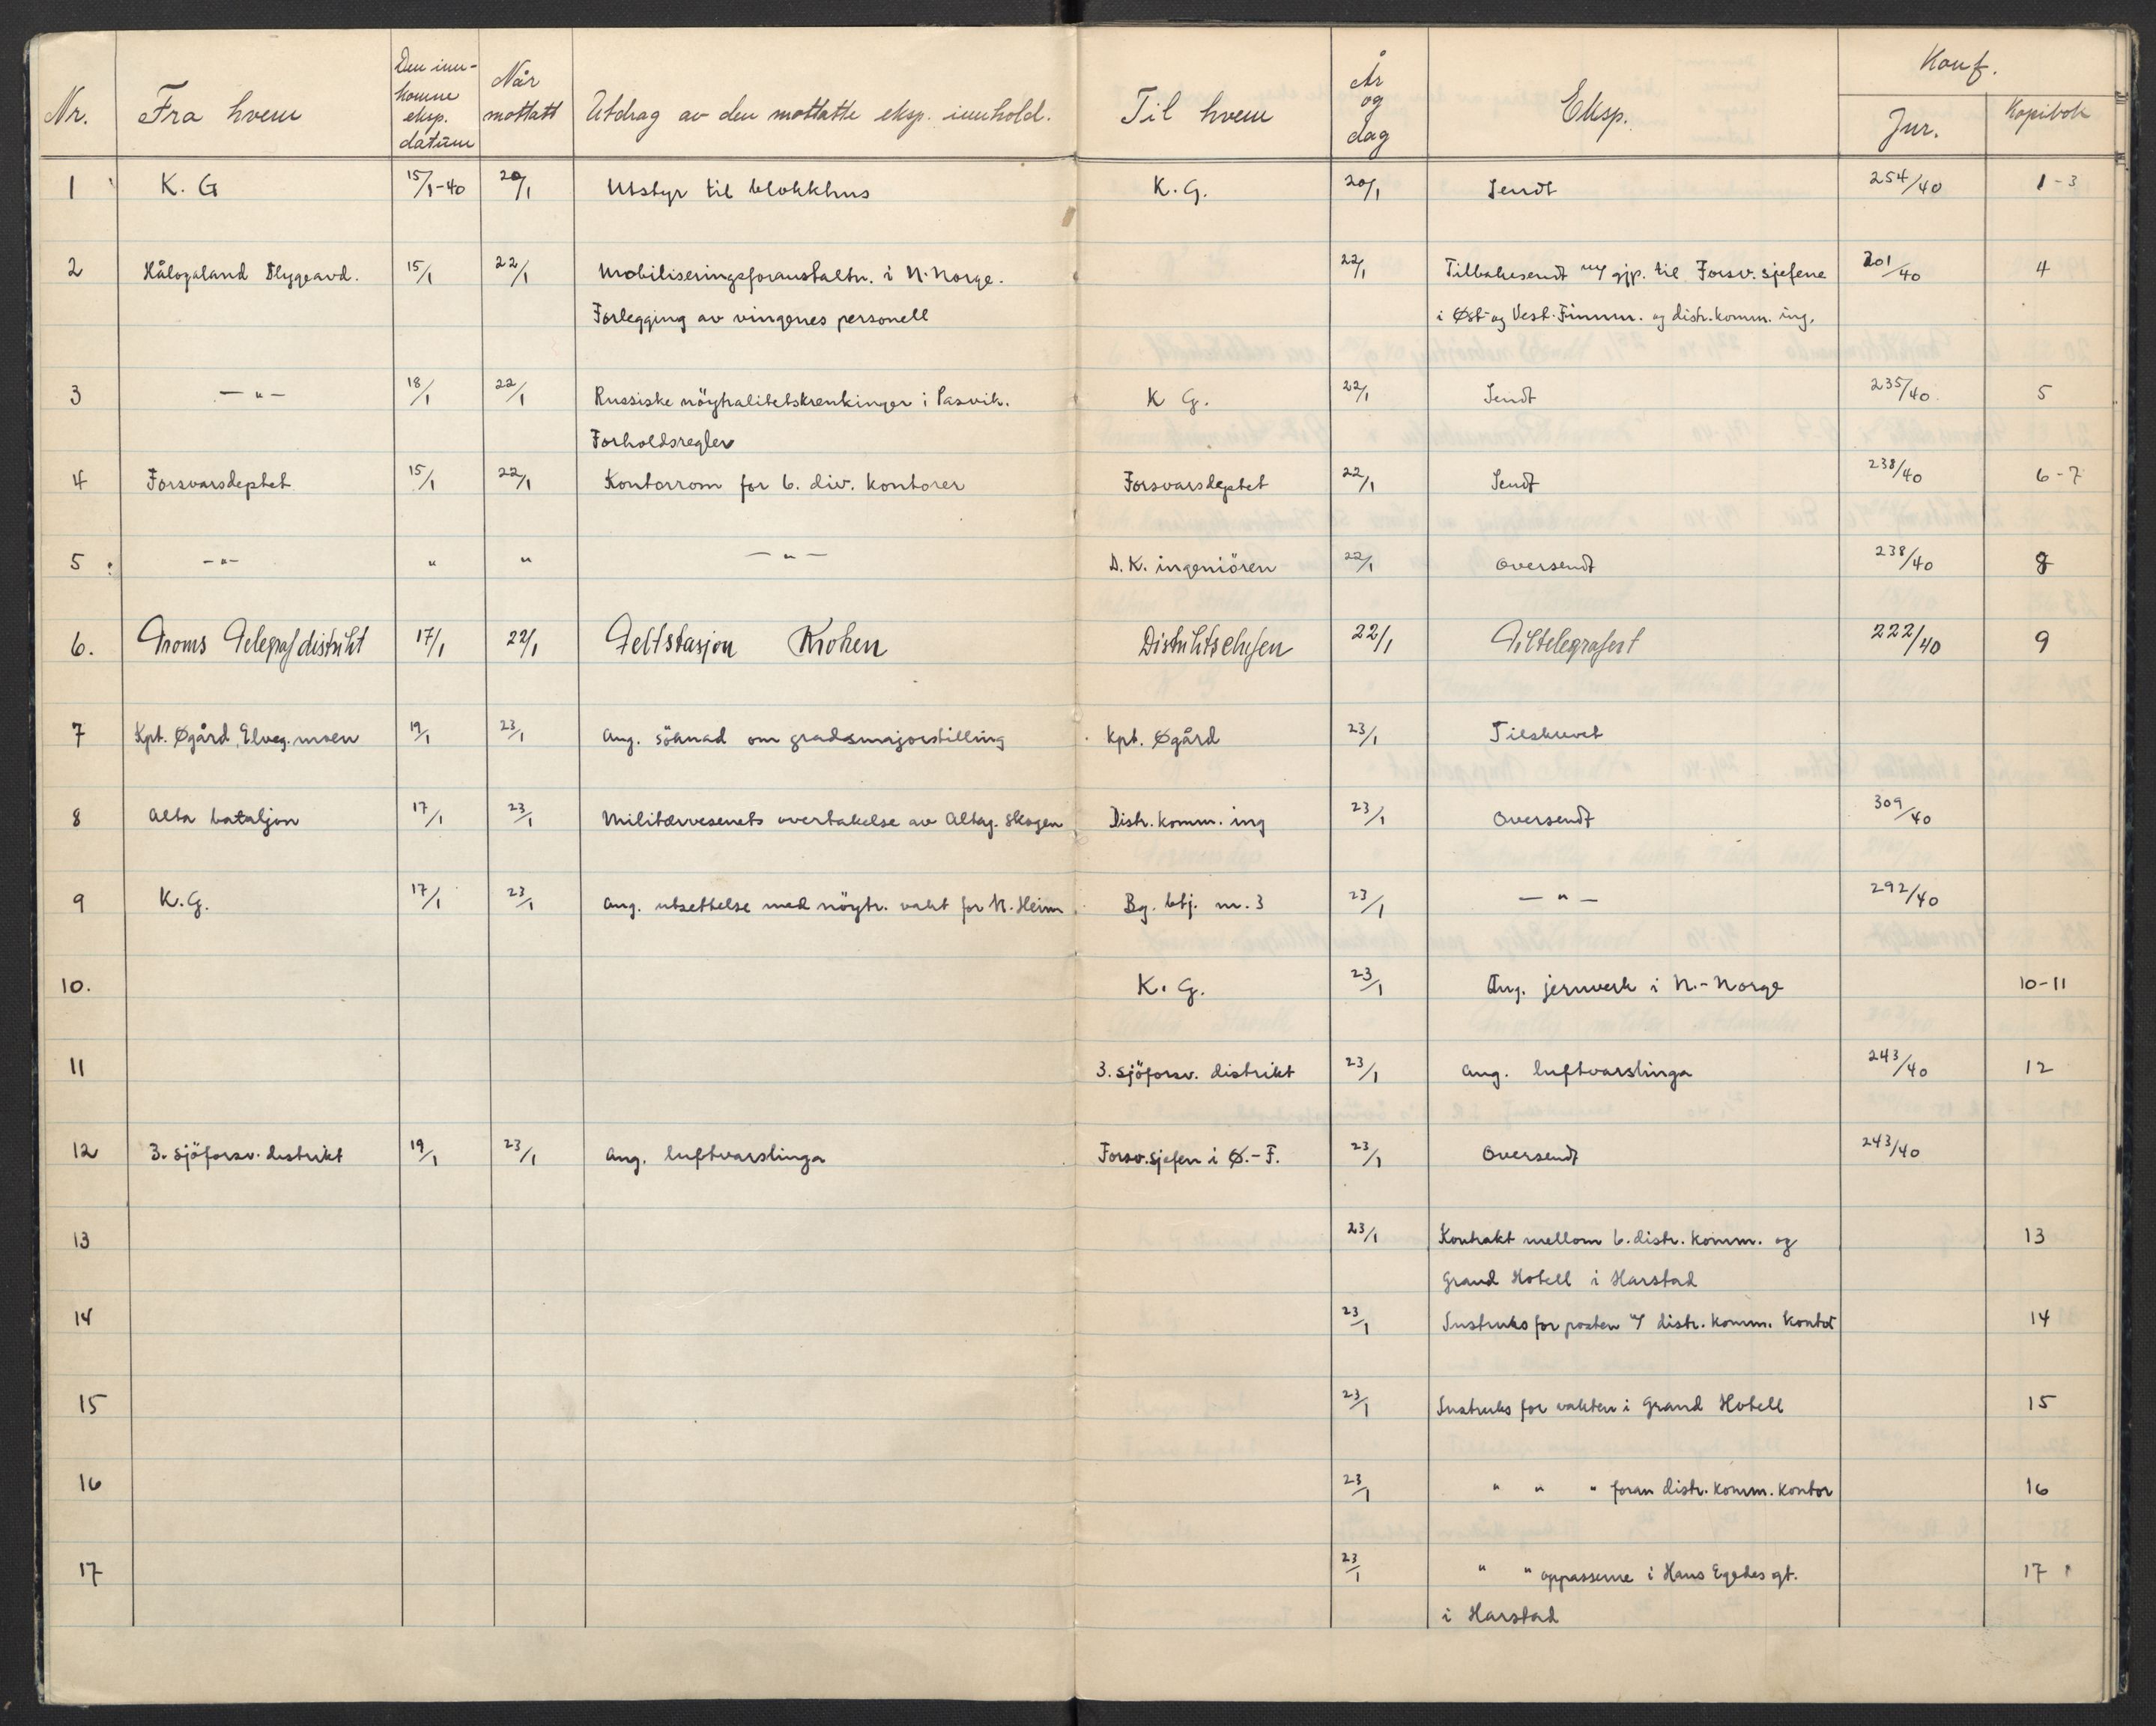 Nr. Fra hvem Den inn- Når Utdrag av den mottatte eksp. innhold. Til hvem År Eksp. Konf.
komne mottatt og Jur. Kopibok
eksp. dag
datum
1 K. G 15/1-40 20/1 Utstyr til blokkhus K. G. 20/1 Sendt 254/40 1-3
2 Hålogaland Flygeavd. 15/1 22/1 Mobiliseringsforanstaltn. i N. Norge. 22/1 Tilbakesendt m/ gjp. til Forsv. sjefene 201/40 4
Forlegging av vingenes personell i Øst- og Vest-Finnm. og distr. komm. ing.
3 — " — 18/1 22/1 Russiske nöytralitetskrenkinger i Pasvik. K G. 22/1 Sendt 235/40 5
Forholdsregler
4 Forsvarsdeptet 15/1 22/1 Kontorrom for 6. div. kontorer Forsvarsdeptet 22/1 Sendt 238/40 6-7
5 — " — " " — " — D. K. ingeniören 22/1 Oversendt 238/40 8
6. Troms Telegrafdistrikt 17/1 22/1 Feltstasjon Kroken Distriktssjefen 22/1 Tiltelegrafert 222/40 9
7 Kpt. Øgård, Elveg.moen 19/1 23/1 Ang. söknad om gradsmajorstilling Kpt. Øgård 23/1 Tilskrevet
8 Alta bataljon 17/1 23/1 Militærvesenets overtakelse av Altag. skogen Distr. komm. ing 23/1 Oversendt 309/40
9 K. G. 17/1 23/1 Ang. utsettelse med nöytr. vakt for N. Heim Bg. btj. nr. 3 23/1 — " — 292/40
10. K. G. 23/1 Ang. jernverk i N.-Norge 10-11
11 3. sjöforsv. distrikt 23/1 Ang. luftvarslinga 243/40 12
12 3. sjöforsv. distrikt 19/1 23/1 Ang. luftvarslinga Forsv.sjefen i Ø.-F. 23/1 Oversendt 243/40
13 23/1 Kontrakt mellom 6. distr. komm. og 13
Grand Hotell i Harstad
14 23/1 Instruks for posten v/ distr. komm. kontor 14
15 23/1 Instruks for vakten i Grand Hotell 15
16 23/1 " " " foran distr. komm. kontor 16
17 23/1 " " oppasserne i Hans Egedes gt. 17
i Harstad